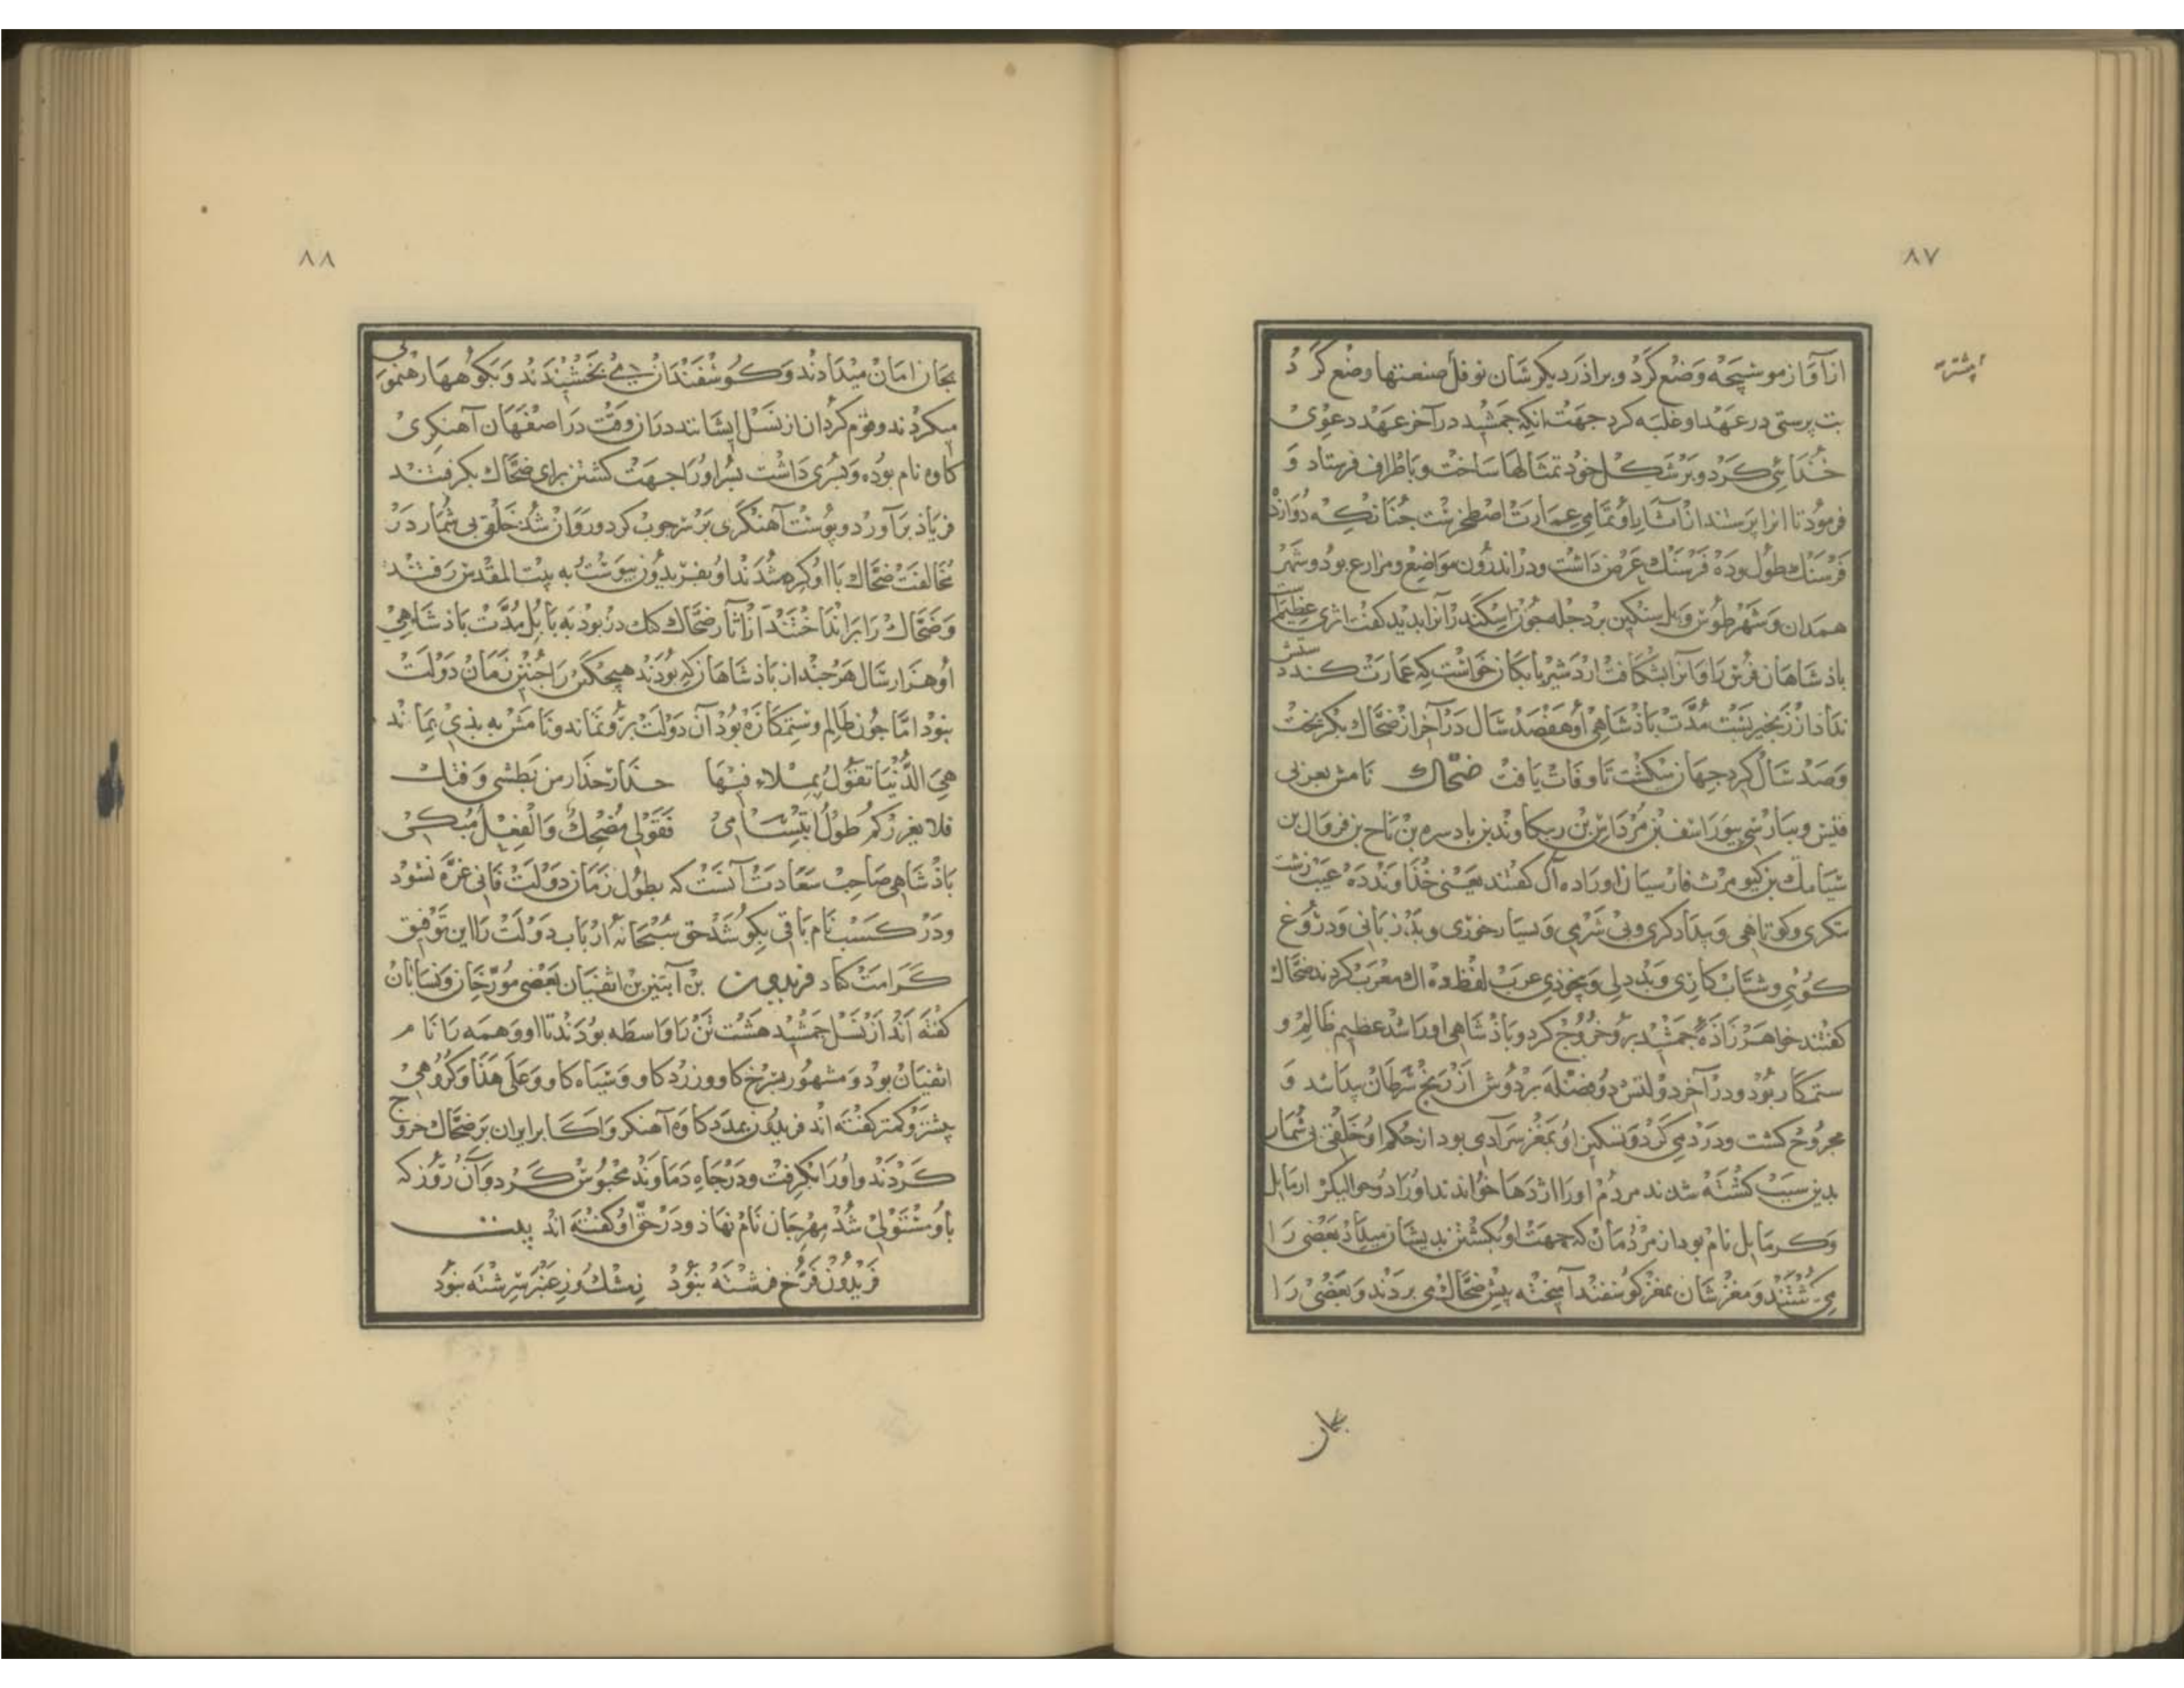 ۸۷
از آواز موسیجه وضع کرد و براذر دیکرشان نوفل صنعتها وضع کرد
بت پرستی در عهد او غلبه کرد جهت انکه جمشید در آخر عهد دعوی
خدائی کرد و بر شکل خود تمثالها ساخت و باطراف فرستاد و
فرمود تا انرا پرستند از آثار او تمامی عمارت اصطخرست جنانکه دوازده
فرسنك طول و ده فرسنك عرض داشت و در اندرون مواضع و مزارع بود و شهر
همدان و شهر طوس و پل سنکین بر دجله جون اسکندر آنرا بدید کفت اثری عظیمست
باذشاهان فرس را و آنرا بشکافت اردشیر بابکان خواست که عمارت کند دستش
نداد از زنجیر بست مدت باذشاهی او هفصد سال در آخر از ضحاك بکریخت
و صد سال کرد جهان میکشت تا وفات یافت ضحاك نامش بعربی
قیس و بپارسی بیوراسف بن مرداس بن ریکاوند بن بادسره بن تاج بن فروال بن
سیامك بن کیومرث فارسیان او را ده آك کفتند یعنی خذاوند ده عیب زشت
بیکری و کوتاهی و بیدادکری و بی شرمی و بسیار خوری و بذ زبانی و دروغ
کوئی و شتاب کاری و بد دلی و بیخردی عرب لفظ ده اك معرب کردند ضحاك
کفتند خواهر زاذه جمشید برو خروج کرد و باذشاهی او را شد عظیم ظالم و
ستمکار بود و در آخر دولتش دو فضله بر دوش از رنج سرطان پیدا شد و
مجروح کشت و درد می کرد و تسکین او بمغز سر آدمی بود از حکم او خلقی بی شمار
بدین سبب کشته شدند مردم او را اژدها خواندند او را دو خوالیکر ارمایل
و کرمایل نام بود از مردمان که جهت او بکشتن بدیشان میداد بعضی را
می کشتند و مغزشان بمغز کوسفند آمیخته پیش ضحاك می بردند و بعضی را
بجان
۸۸
بجان امان میدادند و کوسفندان می بخشیدند و بکوهها رهنمونی
میکردند و قوم کردان از نسل ایشانند در آن وقت در اصفهان آهنکری
کاوه نام بوده و پسری داشت پسر او را جهت کشتن برای ضحاك بکرفتند
فریاذ برآورد و پوست آهنکری بر سر جوب کرد و روان شد خلقی بی شمار در
مخالفت ضحاك با او کرد شدند او بفریدون پیوست به بیت المقدس رفتند
و ضحاك را برانداختند از آثار ضحاك کنك دز بود به بابل مدت باذشاهی
او هزار سال هر جند از باذشاهان که بودند هیچکس را جنین زمان دولت
نبود اما جون ظالم و ستمکاره بود آن دولت برو نماند و نامش به بذی بماند
هی الدنیا تقول بملاء فیها حذار حذار من بطشی و فتك
فلا یغررکم طول ابتسامی فقولی مضحك و الفعل مبکی
باذشاهی صاحب سعادت آنست که بطول زمان دولت فانی غره نشود
و در کسب نام باقی بکوشد حق سبحانه ارباب دولت را این توفیق
کرامت کناد فریدون بن آبتین بن اثفیان بعضی مورخان و نسابان
کفته اند از نسل جمشید هشت تن را واسطه بودند تا او و همه را نام
اثفیان بود و مشهور بسرخ کاو و زرد کاو و سیاه کاو و علی هذا و کروهی
بیشتر و کمتر کفته اند فریدون بمدد کاوه آهنکر و اکابر ایران بر ضحاك خروج
کردند و او را بکرفت و در جاه دماوند محبوس کرد و آن روز که
باو مستولی شد مهرجان نام نهاذ و در حق او کفته اند بیت
فریدون فرخ فرشته نبود ز مشك و ز عنبر سرشته نبود